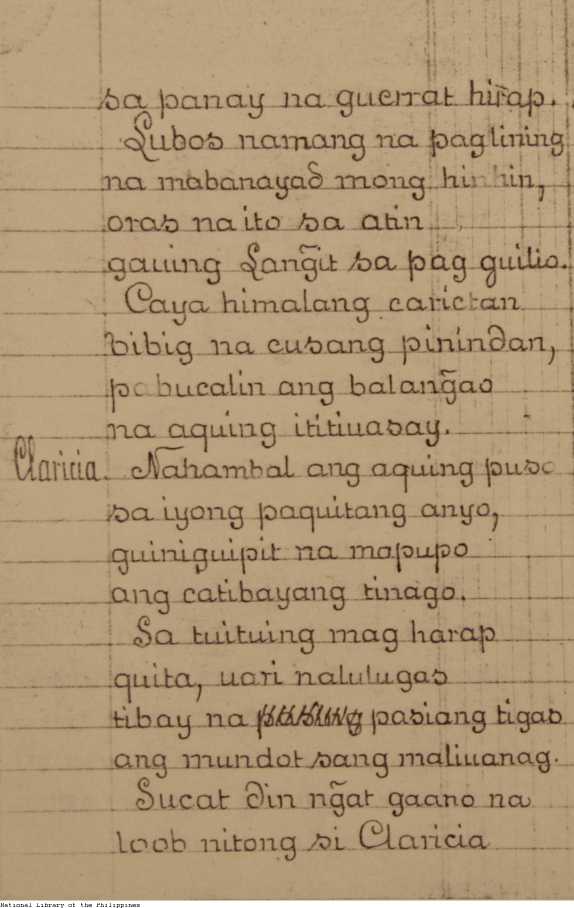 sa panay na guerrat hirap.
Lubos namang na paglining
na mabanayad mong hinhin,
oras na ito sa atin
gauing Lang̃it sa pag guilio.
Caya himalang carictan
bibig na cusang pinindan,
pabucalin ang balang̃ao
na aquing ititiuasay.
Claricia. Nahambal ang aquing puso
sa iyong paquitang anyo,
guiniguipit na mapupo
ang catibayang tinago.
Sa tuituing mag harap
quita, uari nalulugas
tibay na pasiang tigas
ang mundot sang maliuanag.
Sucat din ng̃at gaano na
loob nitong si Claricia
National Library of the Philippines